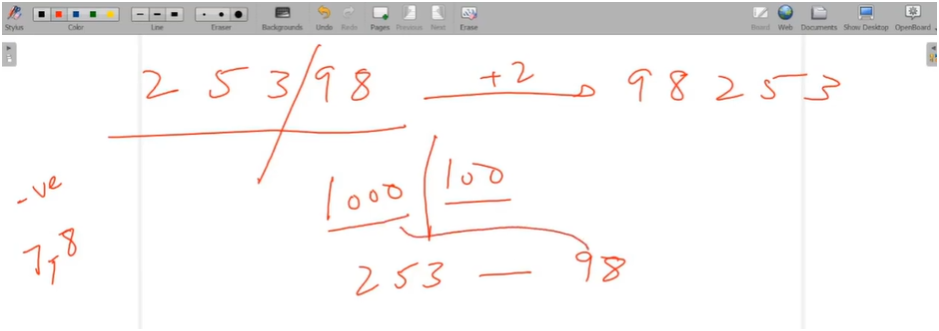 Stylus Color Line Eraser Backgrounds Undo Redo Pages Previous Next Erase Board Web Documents Show Desktop OpenBoard
2 5 3 / 98 +2 98 253
-ve
1000 | 100
7, 8
253 — 98